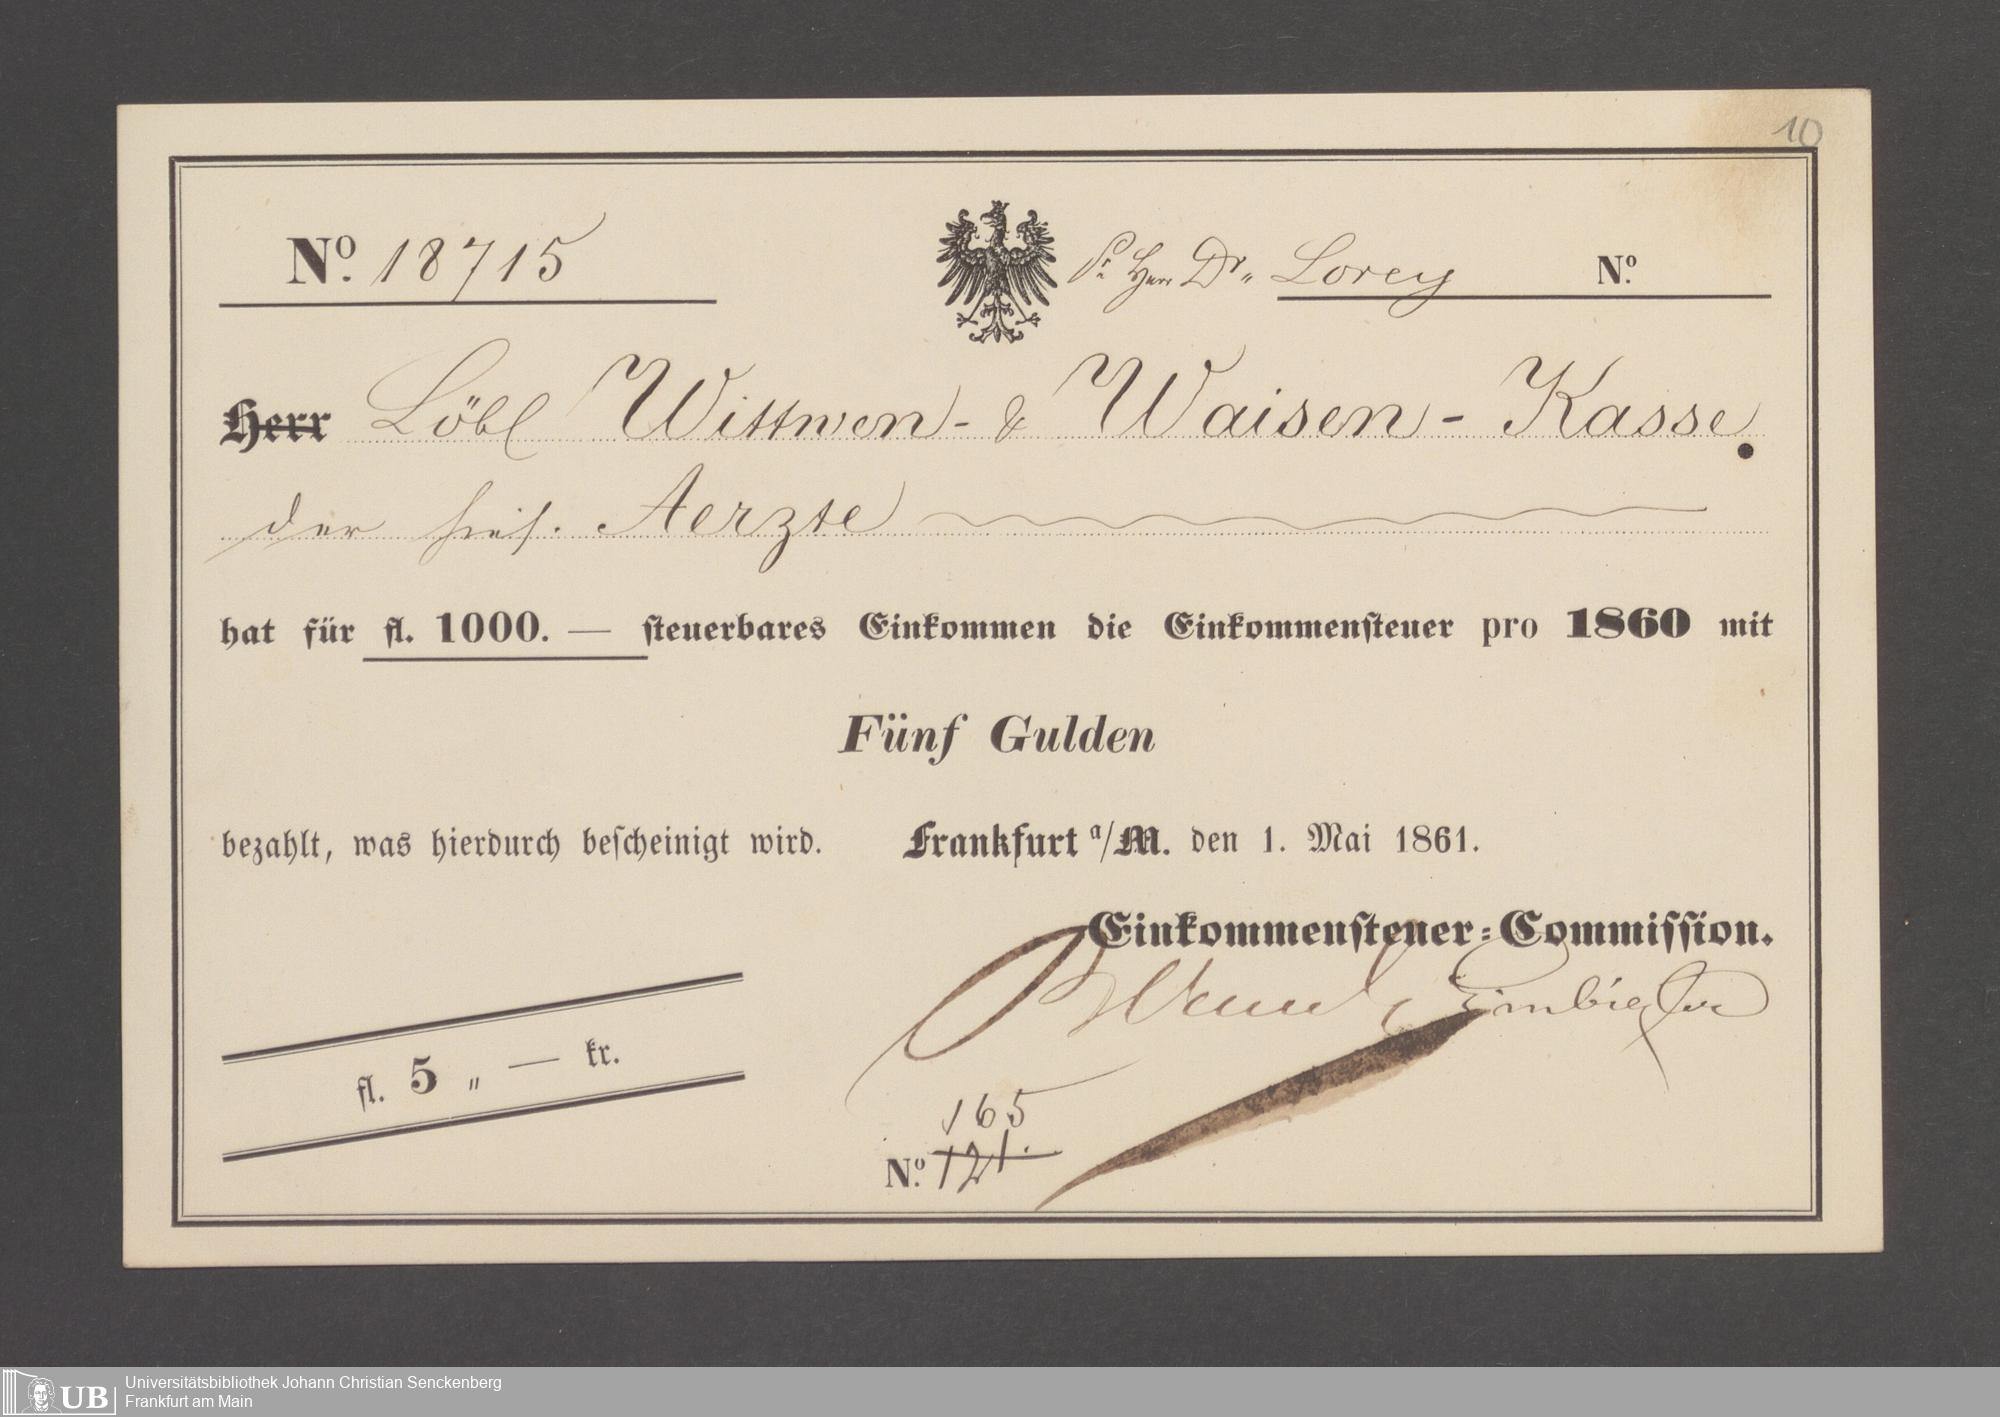 10
No. 18715
Pr. Herr Dr. Lorey No.
Herr Löbl Wittwen- & Waisen-Kasse
der hies. Aerzte
hat für fl. 1000. — steuerbares Einkommen die Einkommensteuer pro 1860 mit
Fünf Gulden
bezahlt, was hierdurch bescheinigt wird. Frankfurt a/M. den 1. Mai 1861.
Einkommensteuer-Commission.
fl. 5 „ — kr.
165
No. 121.
UB Universitätsbibliothek Johann Christian Senckenberg
Frankfurt am Main